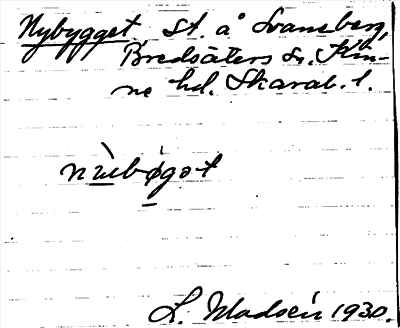 Nybygget. St. å Svansberg,
Bredsäters sn. Kin-
ne hd. Skarab. l.
nùbǿgɔt
L. Madsén 1930.